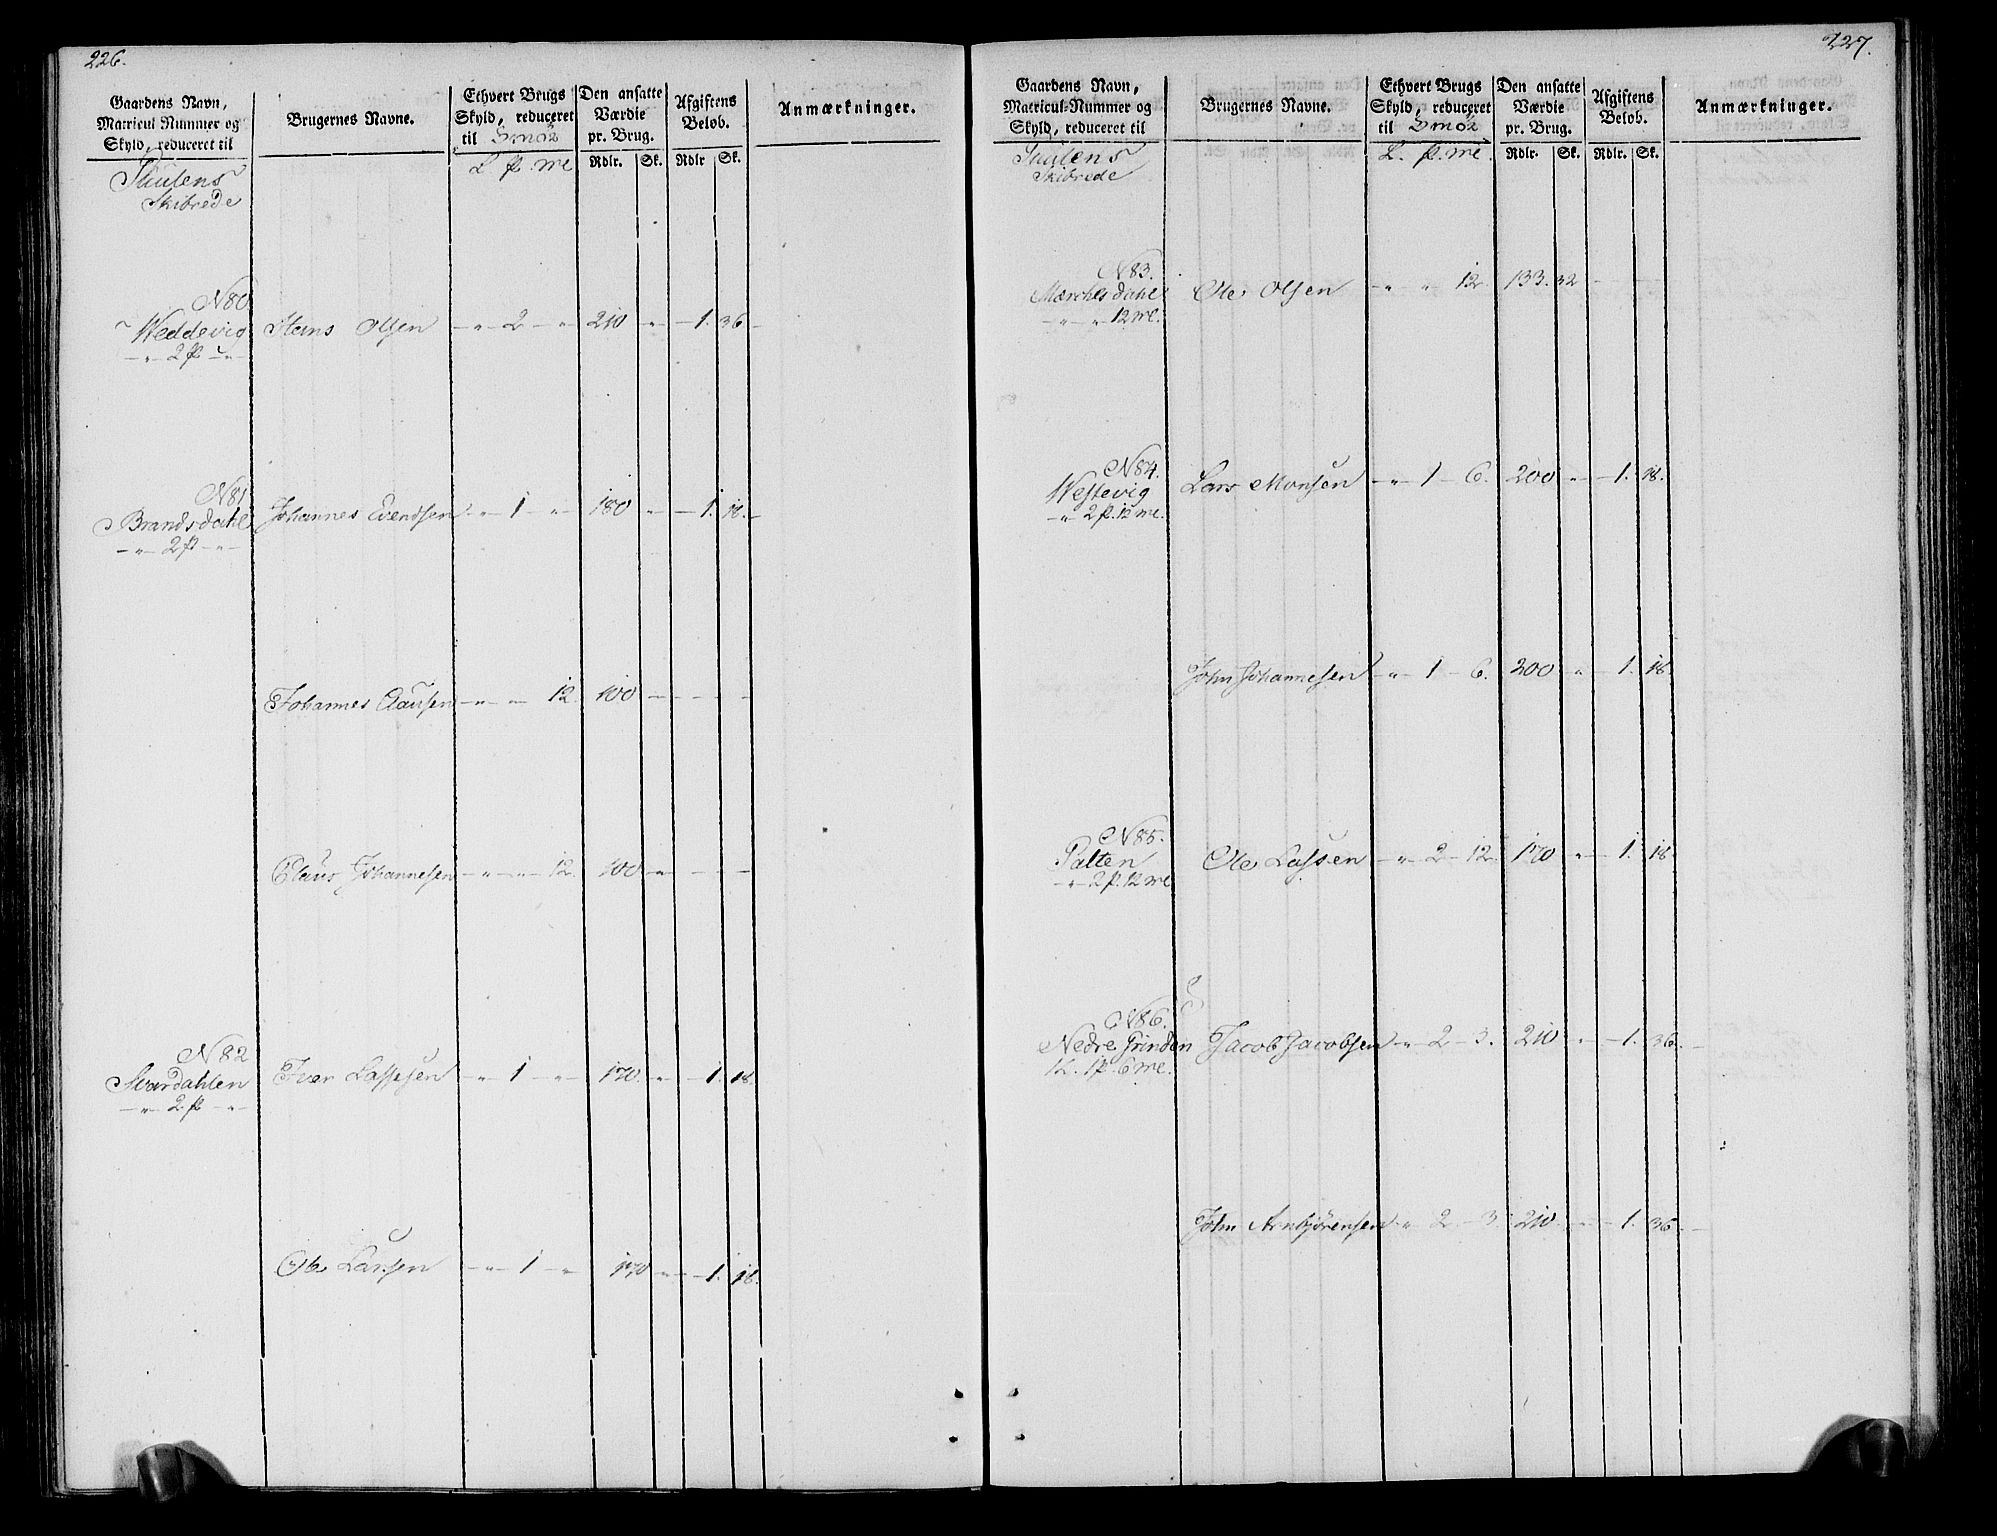 226.
Gaardens Navn,
Matricul Nummer og
Skyld, reduceret til
Brugernes Navne.
Ethvert Brugs
Skyld, reduceret
til Smör
L p me
Den ansatte
Værdie
pr. Brug.
Rdlr. Sk.
Afgiftens
Beløb.
Rdlr Sk.
Anmærkninger.
Skibrede
N 80
Weddevig Hans Olsen - " - 2 - " 210 " 1. 36
- " - 2 p - " -
N 81
Brandsdahl Johannes Evensen - " 1 " 180 " 1. 18.
- " - 2 p - " -
Johannes Clausen - " - " 12. 100 - - - -
Claus Johannesen - " - " 12. 100 - - - -
N 82
Svardahlen Iver Lassesen - " 1 " 170. " 1. 18.
- " - 2 p - " -
Ole Larsen - " - 1 - " 170 - " - 1. 18.
227.
Gaardens Navn,
Matricul-Nummer og
Skyld, reduceret til
Brugernes Navne.
Ethvert Brugs
Skyld, reduceret
til Smör
L. p. me.
Den ansatte
Værdie
pr. Brug.
Rdlr. Sk.
Afgiftens
Beløb.
Rdlr. Sk.
Anmærkninger.
Skibrede
N 83.
Mærchesdahl Ole Olsen - " " 12 133. 32 - -
- " - " 12 me.
N 84.
Westevig Lars Monsen - " - 1 - 6. 200 " 1. 18.
- " - 2 p. 12 me.
John Johannesen - " - 1 - 6. 200 " 1. 18.
N 85.
Palten Ole Lassen - " - 2 - 12. 170 " 1. 18
- " - 2 p. 12 me
N 86.
Nedre Grinden Jacob Jacobsen - " - 2 - 3. 210 " 1. 36.
1 L. 1 p. 6 me.
John Arnbjörensen - " - 2 - 3. 210. " 1. 36